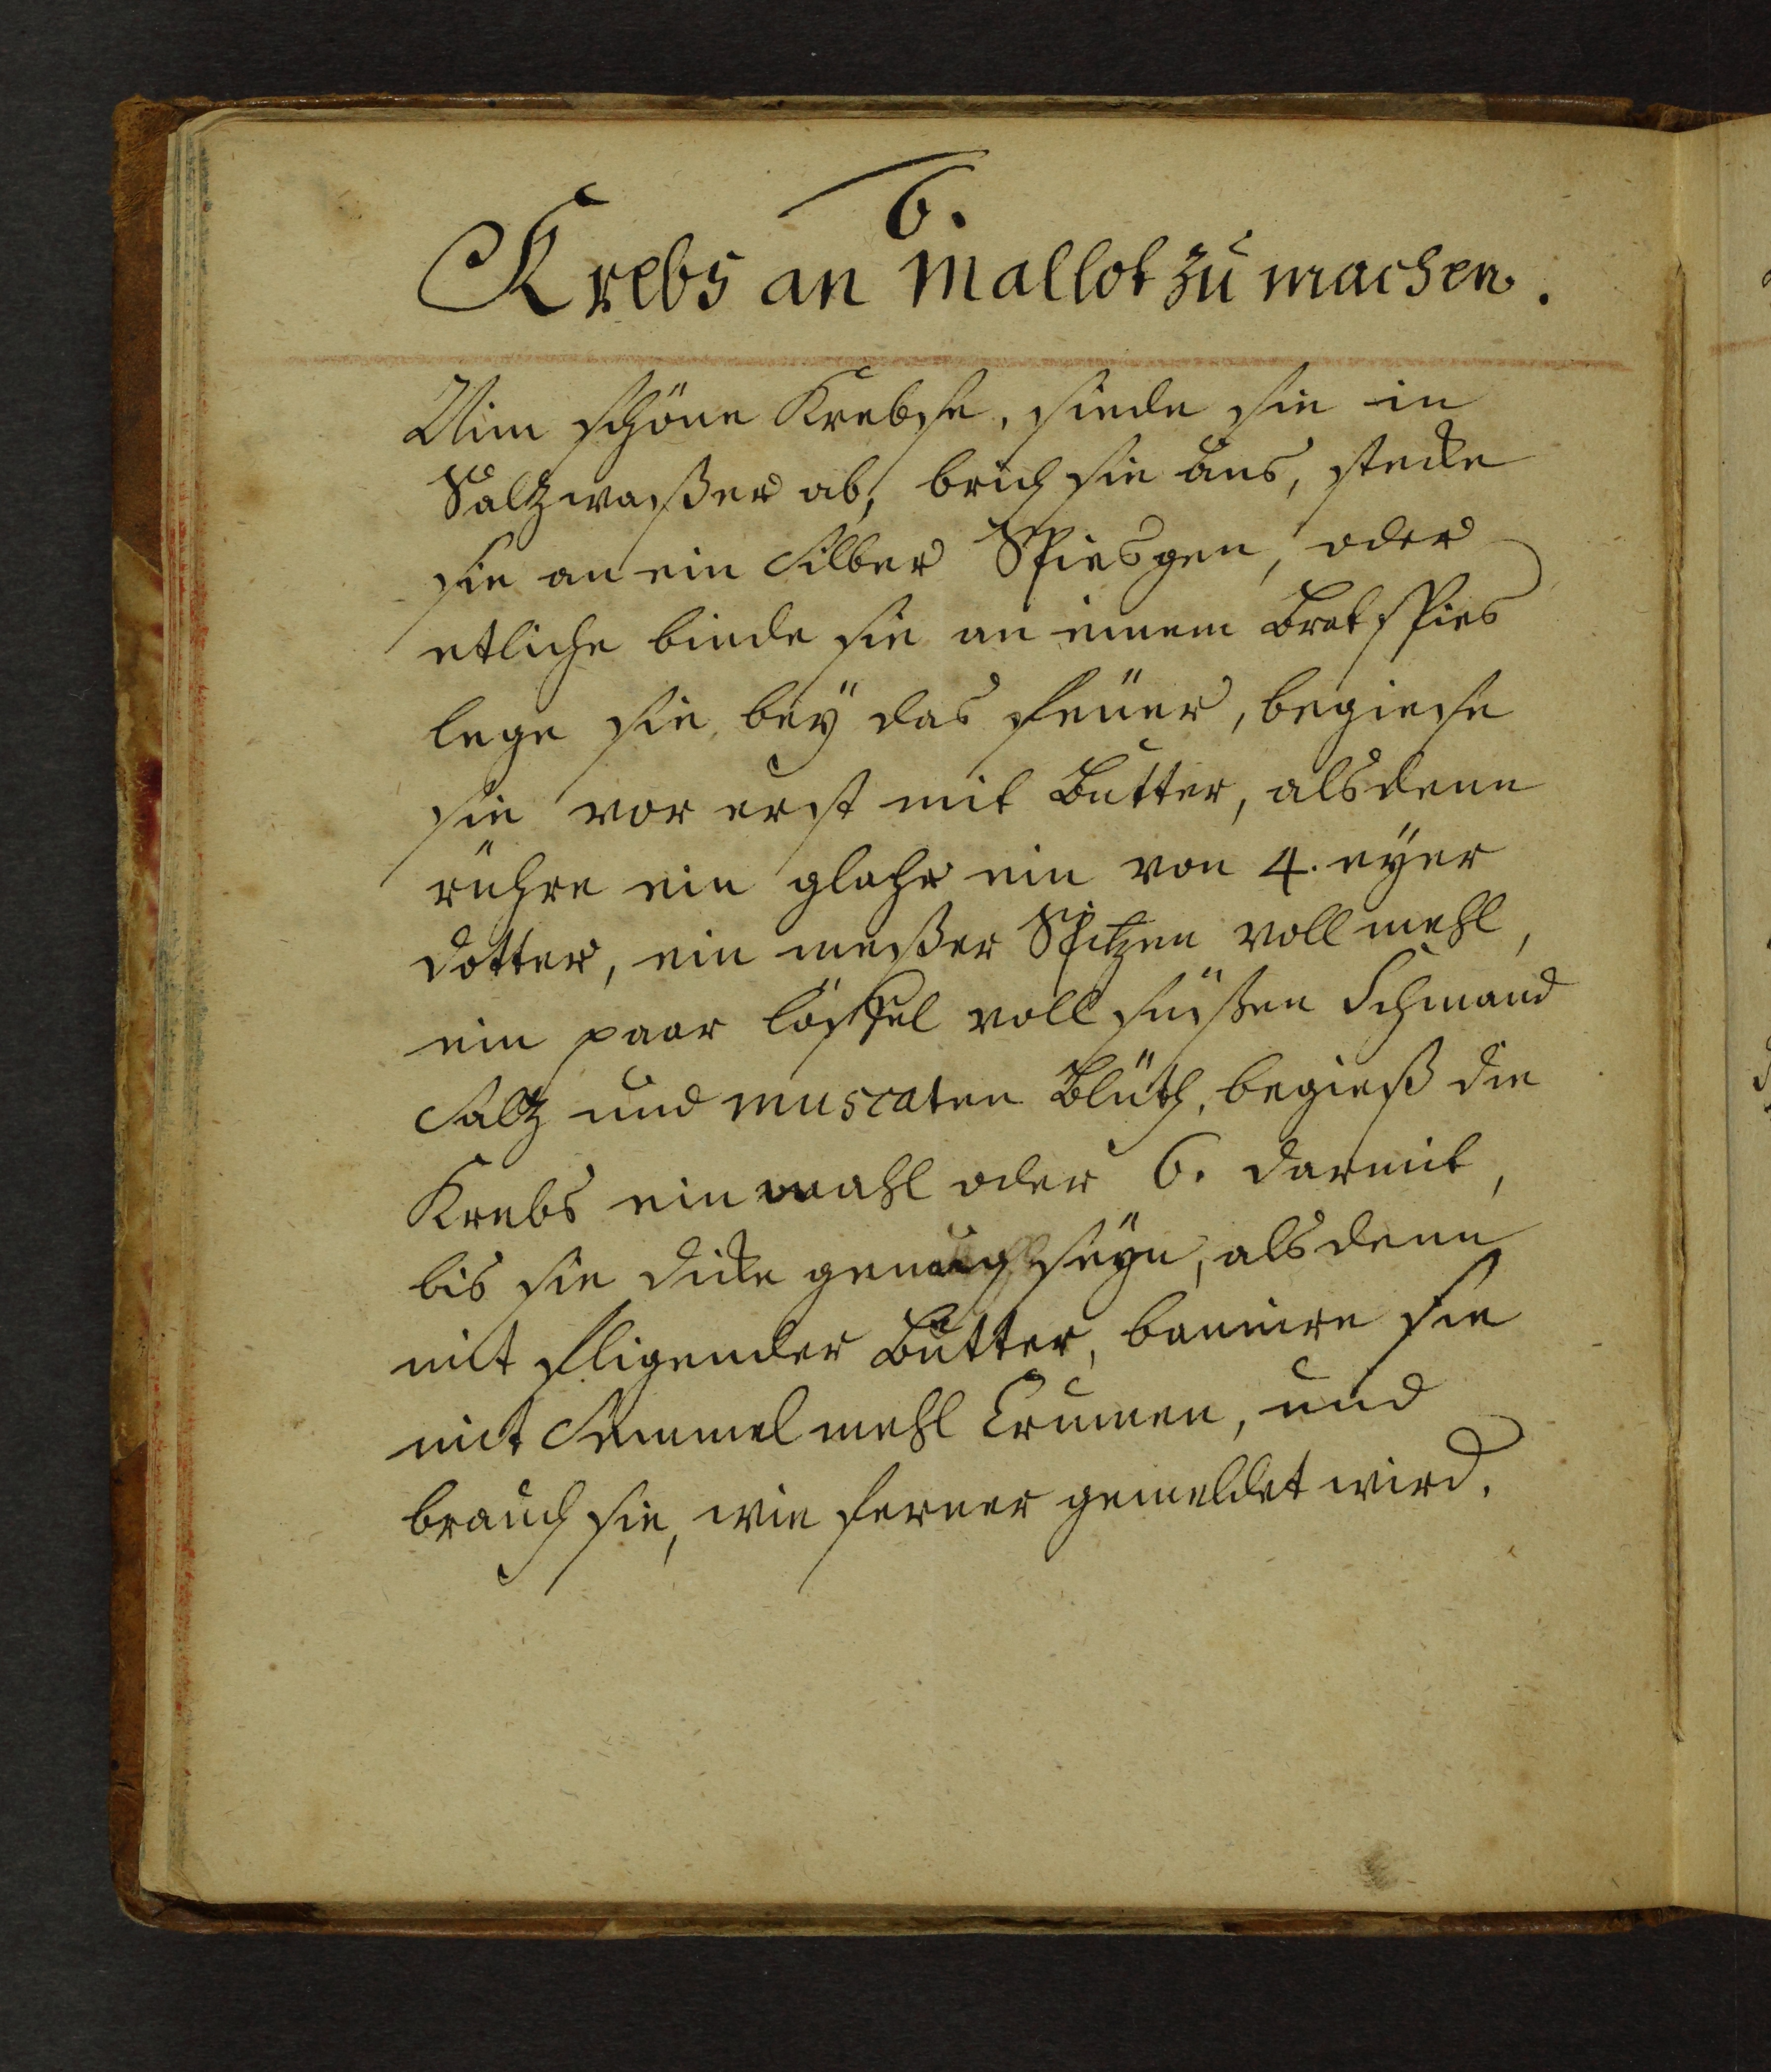 6.
Krebs an Mallot zu machen.
Nim schöne Krebse, siede sie in
Saltzwaßer ab, brich sie aus, stecke
sie an ein Silber Spiesgen, oder
etliche binde sie an einem Bratspies
lege sie bey das feüer, begiese
sie vor erst mit Butter, alsdenn
rühre ein glahr ein von 4. eyer
dotter, ein meßer Spitzen voll mehl,
ein paar löffel voll süßen Schmand
Saltz und muscaten Blüth, begieß die
Krebs ein mahl oder 6. darmit,
bis sie dicke genug seyn, alsdenn
mit fligender Butter, bannire sie
mit Semmel mehl Crumen, und
brauch sie, wie ferner gemeldet wird.